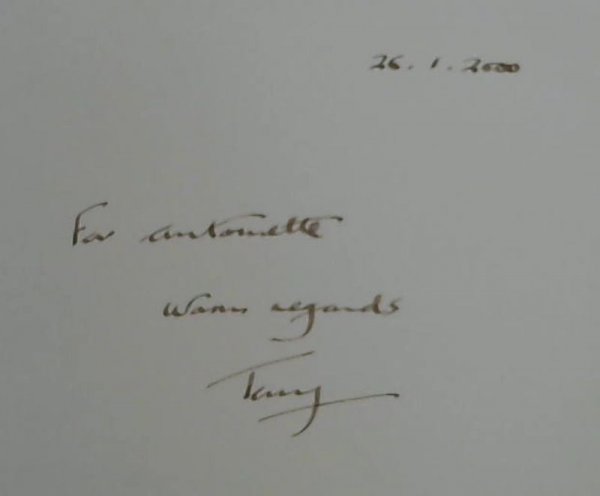 26.1.2000
For Antoinette
Warm regards
Tony